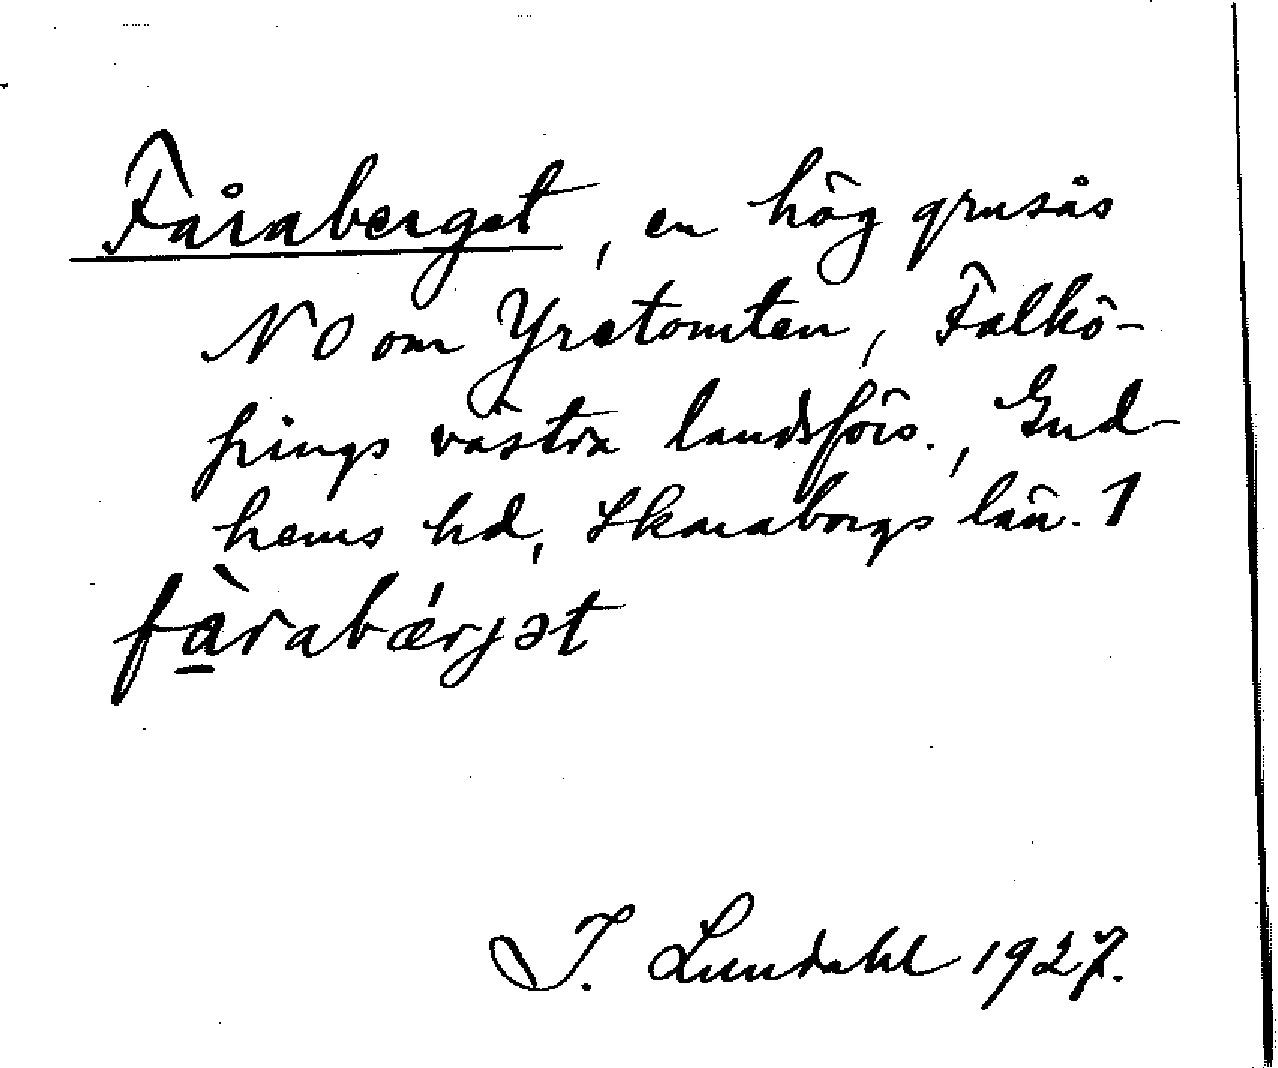 Fåraberget, en hög grusås
NO om Yretomten, Falkö-
pings västra landsförs., Gud-
hems hd, Skaraborgs län. 1
fà̱rabǽrjət
I. Lundahl 1927.